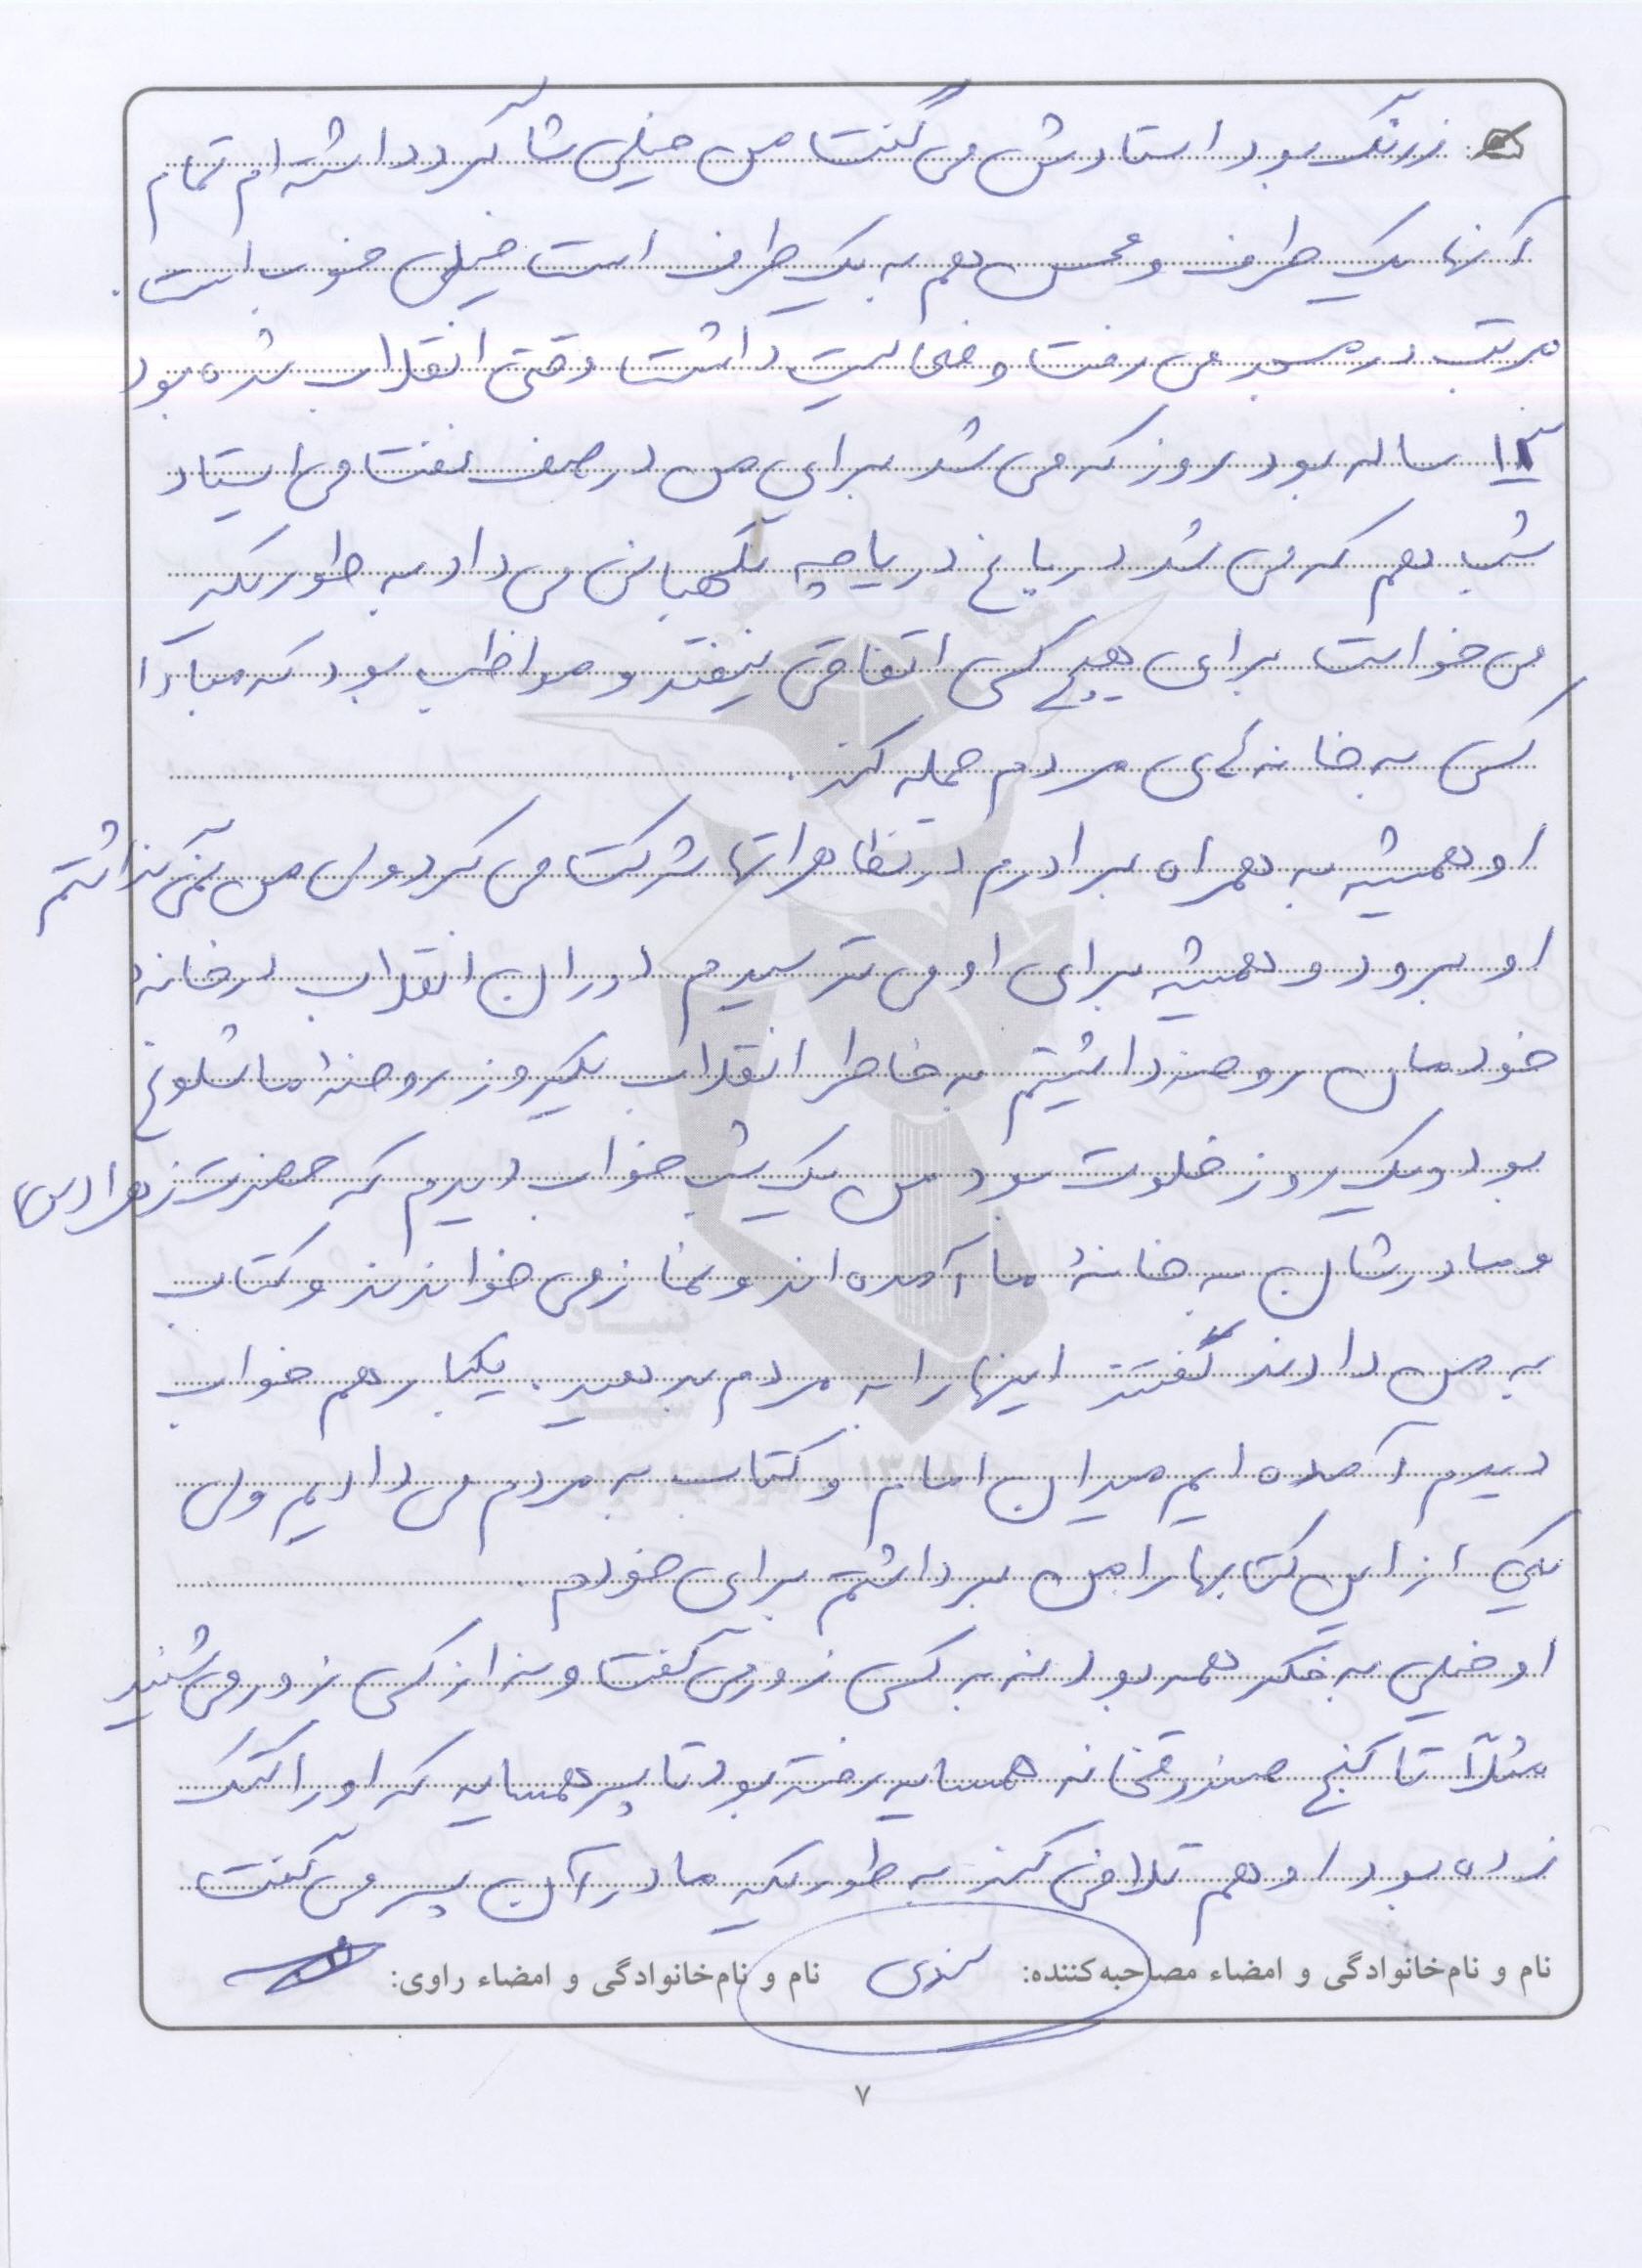 زرنگ بود استادش می گفت من خیلی شاگرد داشته ام تمام
آنها یک طرف و محسن هم به یک طرف است خیلی خوب است.
مرتب در مسجد می رفت و فعالیت داشت وقتی انقلاب شده بود
۱۳ ساله بود روز که می شد برای من در صف نفت می ایستاد
شب هم که می شد در باغ دریاچه نگهبانی می داد به طوریکه
می خواست برای هیچ کسی اتفاقی نیفتد و مواظب بود که مبادا
کسی به خانه های مردم حمله کند.
او همیشه به همراه برادرم در تظاهراتها شرکت می کرد ولی من نمی گذاشتم
او برود و همیشه برای او می ترسیدم دوران انقلاب در خانه
خودمان روضه داشتیم به خاطر انقلاب یکروز روضه ما شلوغ
بود و یک روز خلوت بود من یک شب خواب دیدم که حضرت زهرا (س)
و مادرشان به خانهٔ ما آمده اند و نماز می خواندند و کتاب
به من دادند گفتند اینها را به مردم بدهید. یکبار هم خواب
دیدم آمده ایم میدان امام و کتاب به مردم می دادیم ولی
یکی از این کتابها را من برداشتم برای خودم.
او خیلی به فکر همه بود نه به کسی زور می گفت و نه از کسی زور می شنید
مثلاً تا کنج صندوقخانه همسایه رفته بود تا پسر همسایه که او را کتک
زده بود او هم تلافی کند به طوریکه مادر آن پسر می گفت
نام و نام‌خانوادگی و امضاء مصاحبه‌کننده: نام و نام‌خانوادگی و امضاء راوی:
۷